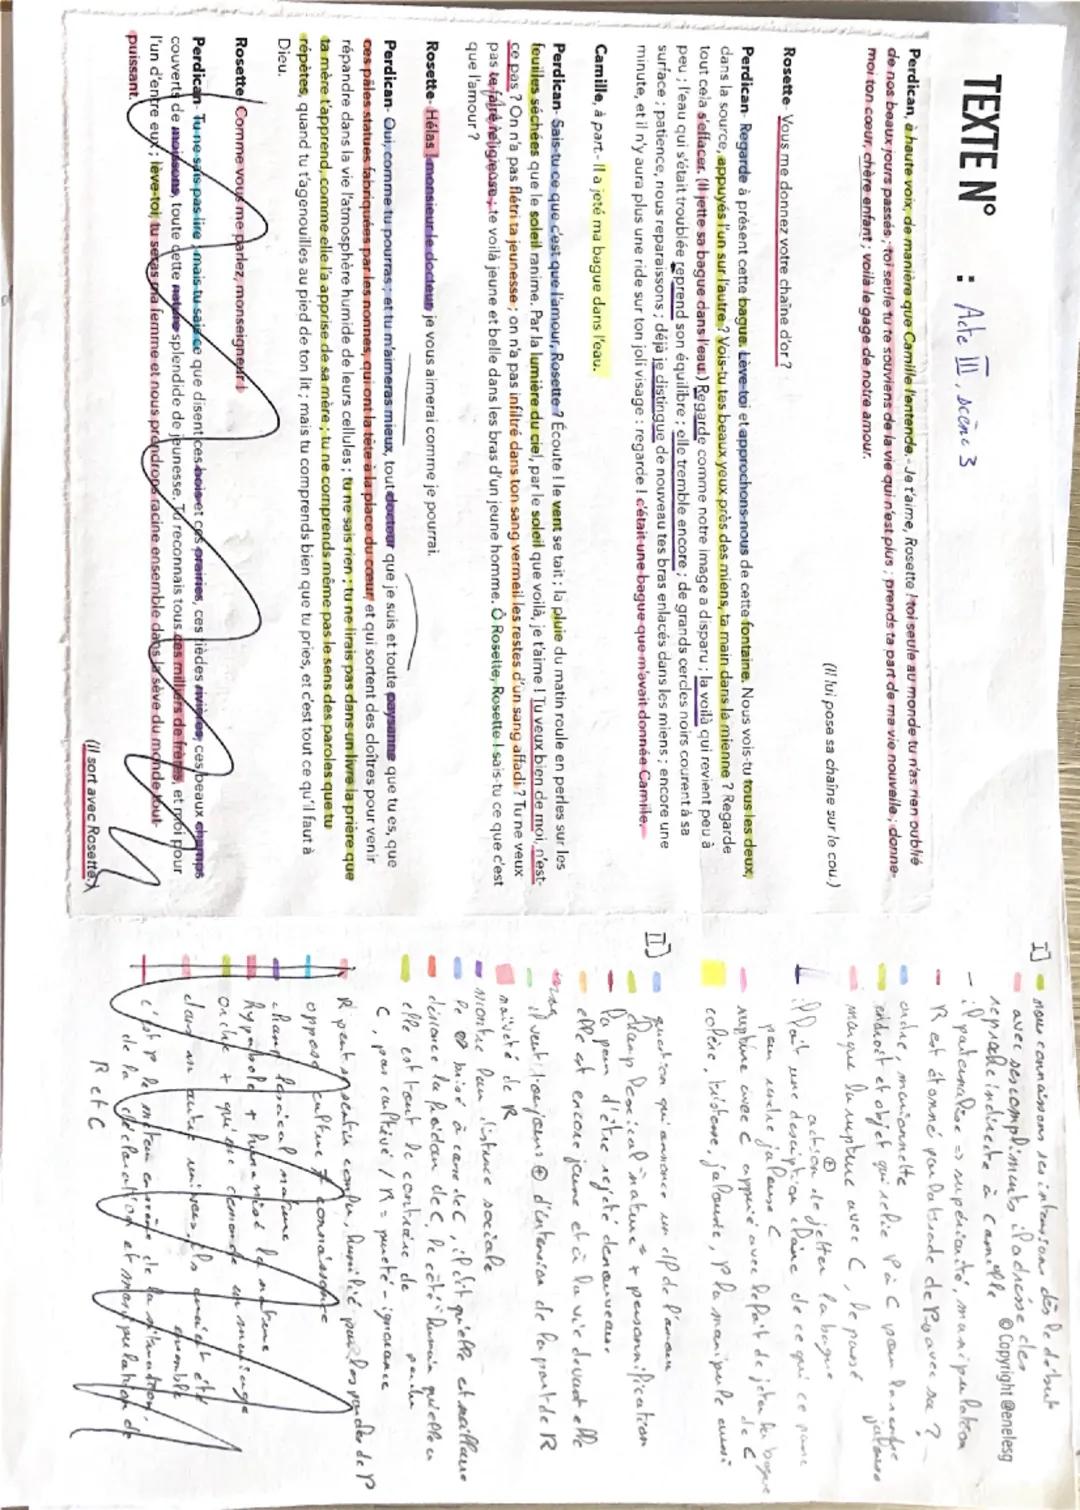 TEXTE N° : Acte III, scène 3
Perdican, à haute voix, de manière que Camille l'entende.- Je t'aime, Rosette ! toi seule au monde tu n'as rien oublié
de nos beaux jours passés ; toi seule tu te souviens de la vie qui n'est plus ; prends ta part de ma vie nouvelle ; donne-
moi ton cœur, chère enfant ; voilà le gage de notre amour.
(Il lui pose sa chaîne sur le cou.)
Rosette- Vous me donnez votre chaîne d'or ?
Perdican- Regarde à présent cette bague. Lève-toi et approchons-nous de cette fontaine. Nous vois-tu tous les deux,
dans la source, appuyés l'un sur l'autre ? Vois-tu tes beaux yeux près des miens, ta main dans la mienne ? Regarde
tout cela s'effacer. (Il jette sa bague dans l'eau.) Regarde comme notre image a disparu ; la voilà qui revient peu à
peu ; l'eau qui s'était troublée reprend son équilibre ; elle tremble encore ; de grands cercles noirs courent à sa
surface ; patience, nous reparaissons ; déjà je distingue de nouveau tes bras enlacés dans les miens ; encore une
minute, et il n'y aura plus une ride sur ton joli visage : regarde ! c'était une bague que m'avait donnée Camille.
Camille, à part.- Il a jeté ma bague dans l'eau.
Perdican- Sais-tu ce que c'est que l'amour, Rosette ? Écoute ! le vent se tait ; la pluie du matin roule en perles sur les
feuilles séchées que le soleil ranime. Par la lumière du ciel, par le soleil que voilà, je t'aime ! Tu veux bien de moi, n'est-
ce pas ? On n'a pas flétri ta jeunesse ; on n'a pas infiltré dans ton sang vermeil les restes d'un sang affadi ? Tu ne veux
pas te faire religieuse ; te voilà jeune et belle dans les bras d'un jeune homme. Ô Rosette, Rosette ! sais-tu ce que c'est
que l'amour ?
Rosette- Hélas ! monsieur le docteur, je vous aimerai comme je pourrai.
Perdican- Oui, comme tu pourras ; et tu m'aimeras mieux, tout docteur que je suis et toute paysanne que tu es, que
ces pâles statues fabriquées par les nonnes, qui ont la tête à la place du cœur, et qui sortent des cloîtres pour venir
répandre dans la vie l'atmosphère humide de leurs cellules ; tu ne sais rien ; tu ne lirais pas dans un livre la prière que
ta mère t'apprend, comme elle l'a apprise de sa mère ; tu ne comprends même pas le sens des paroles que tu
répètes, quand tu t'agenouilles au pied de ton lit ; mais tu comprends bien que tu pries, et c'est tout ce qu'il faut à
Dieu.
Rosette- Comme vous me parlez, monseigneur !
Perdican- Tu ne sais pas lire ; mais tu sais ce que disent ces bois et ces prairies, ces tièdes rivières, ces beaux champs
couverts de moissons, toute cette nature splendide de jeunesse. Tu reconnais tous ces milliers de frères, et moi pour
l'un d'entre eux ; lève-toi, tu seras ma femme et nous prendrons racine ensemble dans la sève du monde tout-
puissant.
(Il sort avec Rosette.)
I] nous connaissons ses intensions dès le début
avec ses compliments il adresse des
reproche indirecte à Camille
© Copyright @enelesg
- il paternalise => supériorité, manipulation
R est étonné
ordre, marionnette
endroit et objet qui relie P à C pour la rendre jalouse
marque la rupture avec C, le passé
il fait une description claire de ce qui se passe
⊕ action de jetter la bague
pour rendre jalouse C
rupture avec C appuié avec le fait de jeter la bague de C
colère, tristesse, jalousie, P la manipule aussi
II] question qui annonce un def de l'amour
champ lexical nature + personnification
la peur d'être rejeté de nouveau
elle est encore jeune et à la vie devant elle
il veut toujours ⊕ d'intension de la part de R
naïveté de R
montre leur distance sociale
dénonce la froideur de C, le côté humain qu'elle a perdu
elle est tout le contraire de
C, pas cultivé / R = pureté - ignorance
oppose culture ≠ connaissance
champ lexical nature
R et C